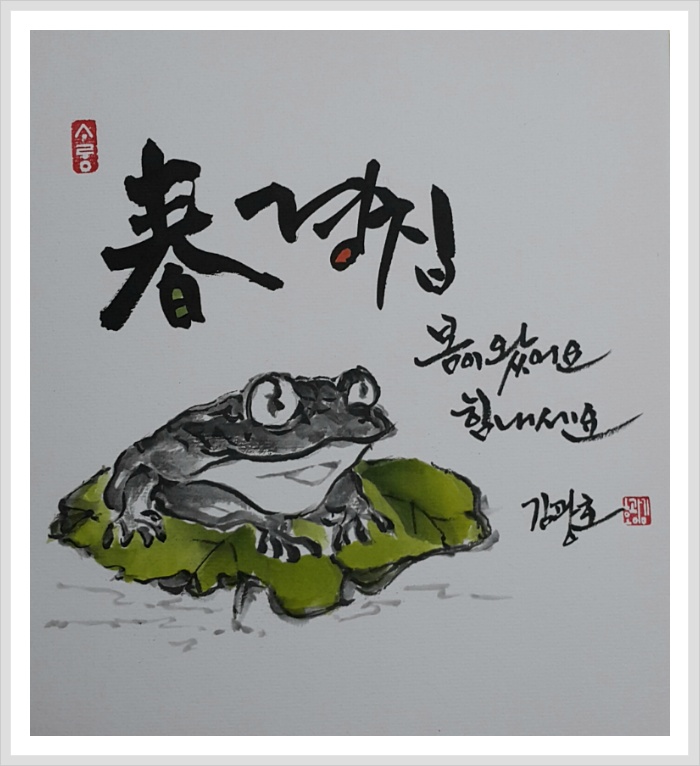 春 경칩
봄이 왔어요
힘내세요
김광호